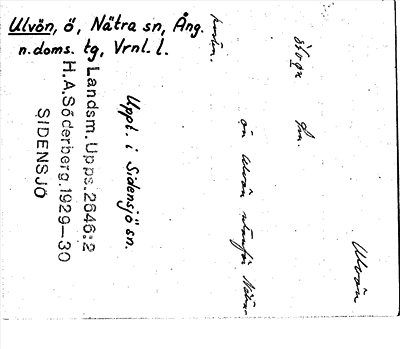 Ulvön, ö, Nätra sn, Ång.
n. doms. tg, Vrnl. l.
Landsm. Upps. 2646:2
H.A. Söderberg. 1929—30
SIDENSJÖ
Uppt. i Sidensjö sn.
Ulvön
ön Ulvön utanför Nätra